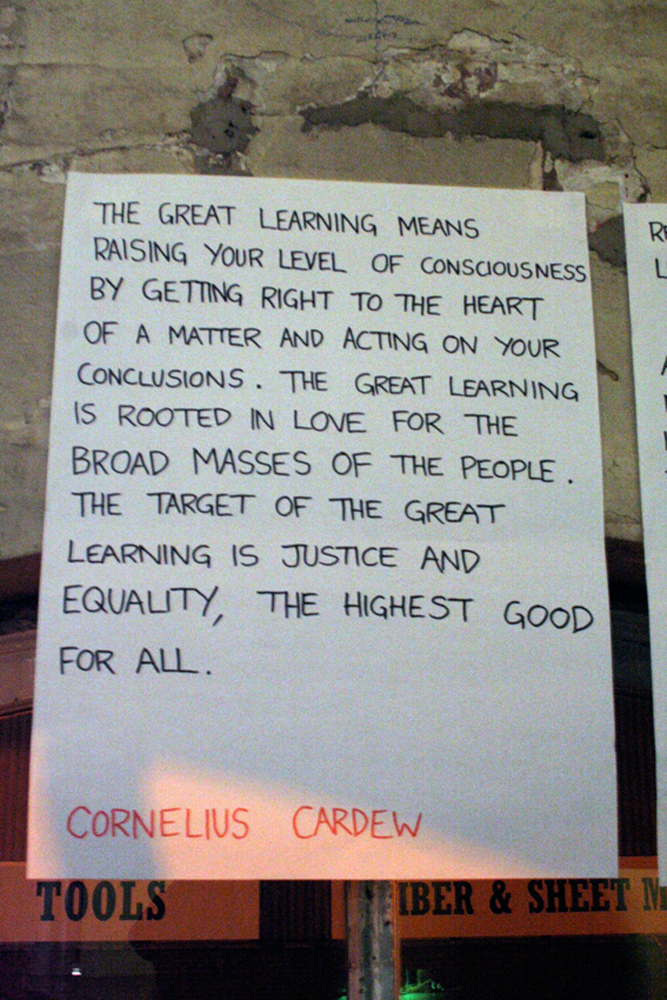 THE GREAT LEARNING MEANS
RAISING YOUR LEVEL OF CONSCIOUSNESS
BY GETTING RIGHT TO THE HEART
OF A MATTER AND ACTING ON YOUR
CONCLUSIONS. THE GREAT LEARNING
IS ROOTED IN LOVE FOR THE
BROAD MASSES OF THE PEOPLE.
THE TARGET OF THE GREAT
LEARNING IS JUSTICE AND
EQUALITY, THE HIGHEST GOOD
FOR ALL.
CORNELIUS CARDEW
TOOLS
& SHEET